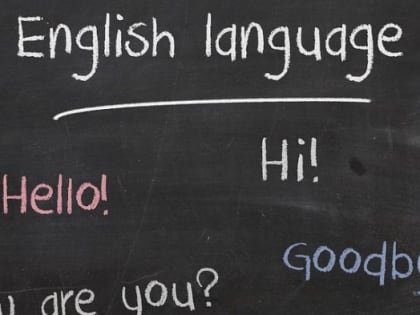 English language
Hi!
Hello!
are you?